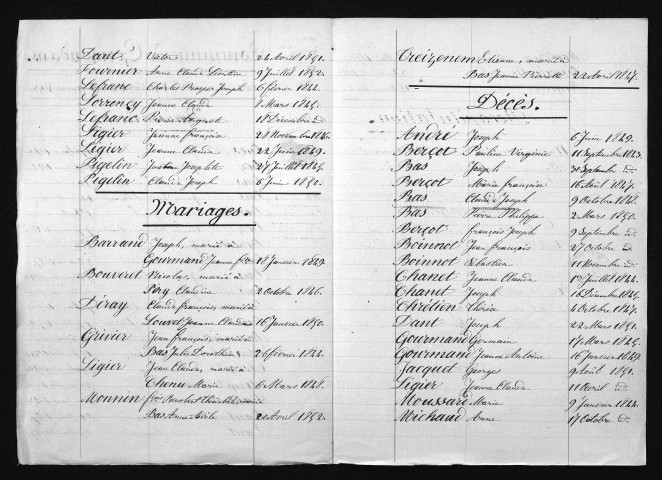 Darit Victor 24 Avril 1851.
Fournier Anne Claude Léontine 9 Juillet 1852.
Lefranc Charles Prosper Joseph 6 février 1844.
Lorrency Jeanne Claude 8 Mars 1845.
Lefranc Pierre August 18 Décembre d.
Ligier Jeanne françoise 28 Novembre 1846.
Ligier Jeanne Claude 22 Juin 1849.
Pigelin Justine Josephte 27 Juillet 1845.
Pigelin Claude Joseph 6 Juin 1850.
Mariages.
Barrand Joseph, marié à
Gourmand Jeanne fse 18 Janvier 1849.
Bouveret Nicolas, marié à
Pery Claudine 2 Octobre 1846.
Déray Claude françois, marié à
Louvet Jeanne Claudine 16 Janvier 1850.
Grivier Jean françois, marié à
Bas Julie Dorothée 26 février 1844.
Ligier Jean Claude, marié à
Chenu Marie 6 Mars 1848.
Monnin
Bas Anne Adèle Avril 1852.
Creizenem Etienne, marié à
Bas Jeanne Pierrette 22 Avril 1847.
Décès.
André Joseph 6 Juin 1849.
Berçot Pauline Virginie 11 Septembre 1843.
Bas Joseph 30 Septembre d.
Berçot Marie françoise 16 Avril 1847.
Bas Claude Joseph 9 Octobre 1848.
Bas Pierre Philippe 2 Mars 1850.
Berçot françois Joseph 9 Septembre d.
Boinnot Jean françois 27 Octobre d.
Boinnot Sébastien 11 Novembre d.
Chanet Jeanne Claude 1er Juillet 1844.
Chanet Joseph 16 Décembre 1845.
Chrétien Thérèse 4 Octobre 1847.
Dant Joseph 22 Mars 1851.
Gourmand Germain 17 Mars 1845.
Gourmand Jeanne Antoine 16 Janvier 1849.
Jacquet Georges 9 Avril 1851.
Ligier Jeanne Claude 11 Avril d.
Moussard Marie 9 Janvier 1844.
Michaud Anne 17 Octobre d.